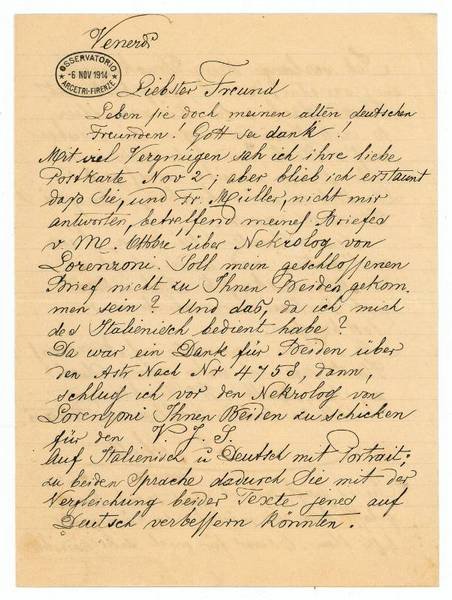 Venerdì
OSSERVATORIO
-6 NOV 1914
ARCETRI-FIRENZE
Liebster Freund
Leben sie doch meinen alten deutschen
Freunden! Gott sei dank!
Mit viel Vergnügen sah ich ihre liebe
Postkarte Nov 2; aber blieb ich erstaunt
daß Sie, und Fr. Müller, nicht mir
antworten, betreffend meines Briefes
v M. Ottbre über Nekrolog von
Lorenzoni. Soll mein geschlossenen
Brief nicht zu Ihnen Beiden gekom
men sein? Und das, da ich mich
des Italienisch bedient habe?
Da war ein Dank für Beiden über
den Astr Nach Nr 4758, dann,
schlug ich vor den Nekrolog von
Lorenzoni Ihnen Beiden zu schicken
für den V. J. S.
Auf Italienisch u Deutsch mit Portrait;
zu beiden Sprache dadurch Sie mit der
Vergleichung beider Texte jenes auf
Deutsch verbessern könnten.